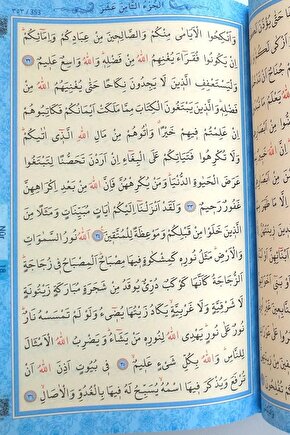 اَلْجُزْءُ الثَّامِنُ عَشَرَ
٣٥٣ / 353
وَاَنْكِحُوا الْاَيَامٰى مِنْكُمْ وَالصَّالِحٖينَ مِنْ عِبَادِكُمْ وَاِمَٓائِكُمْۜ
اِنْ يَكُونُوا فُقَرَٓاءَ يُغْنِهِمُ اللّٰهُ مِنْ فَضْلِهٖۜ وَاللّٰهُ وَاسِعٌ عَلٖيمٌ ﴿٣٢﴾
وَلْيَسْتَعْفِفِ الَّذٖينَ لَا يَجِدُونَ نِكَاحًا حَتّٰى يُغْنِيَهُمُ اللّٰهُ مِنْ
فَضْلِهٖۜ وَالَّذٖينَ يَبْتَغُونَ الْكِتَابَ مِمَّا مَلَكَتْ اَيْمَانُكُمْ فَكَاتِبُوهُمْ
اِنْ عَلِمْتُمْ فٖيهِمْ خَيْرًاۗ وَاٰتُوهُمْ مِنْ مَالِ اللّٰهِ الَّذٖٓي اٰتٰيكُمْۜ
وَلَا تُكْرِهُوا فَتَيَاتِكُمْ عَلَى الْبِغَٓاءِ اِنْ اَرَدْنَ تَحَصُّنًا لِتَبْتَغُوا
عَرَضَ الْحَيٰوةِ الدُّنْيَاۜ وَمَنْ يُكْرِهْهُنَّ فَاِنَّ اللّٰهَ مِنْ بَعْدِ اِكْرَاهِهِنَّ
غَفُورٌ رَحٖيمٌ ﴿٣٣﴾ وَلَقَدْ اَنْزَلْنَٓا اِلَيْكُمْ اٰيَاتٍ مُبَيِّنَاتٍ وَمَثَلًا مِنَ
الَّذٖينَ خَلَوْا مِنْ قَبْلِكُمْ وَمَوْعِظَةً لِلْمُتَّقٖينَ ﴿٣٤﴾ اَللّٰهُ نُورُ السَّمٰوَاتِ
وَالْاَرْضِۜ مَثَلُ نُورِهٖ كَمِشْكٰوةٍ فٖيهَا مِصْبَاحٌۜ اَلْمِصْبَاحُ فٖي زُجَاجَةٍۜ
اَلزُّجَاجَةُ كَاَنَّهَا كَوْكَبٌ دُرِّيٌّ يُوقَدُ مِنْ شَجَرَةٍ مُبَارَكَةٍ زَيْتُونَةٍ
لَا شَرْقِيَّةٍ وَلَا غَرْبِيَّةٍۙ يَكَادُ زَيْتُهَا يُضٖٓيءُ وَلَوْ لَمْ تَمْسَسْهُ نَارٌۜ
نُورٌ عَلٰى نُورٍۜ يَهْدِي اللّٰهُ لِنُورِهٖ مَنْ يَشَٓاءُۜ وَيَضْرِبُ اللّٰهُ الْاَمْثَالَ
لِلنَّاسِۜ وَاللّٰهُ بِكُلِّ شَيْءٍ عَلٖيمٌۙ ﴿٣٥﴾ فٖي بُيُوتٍ اَذِنَ اللّٰهُ اَنْ
تُرْفَعَ وَيُذْكَرَ فٖيهَا اسْمُهُۙ يُسَبِّحُ لَهُ فٖيهَا بِالْغُدُوِّ وَالْاٰصَالِۙ ﴿٣٦﴾